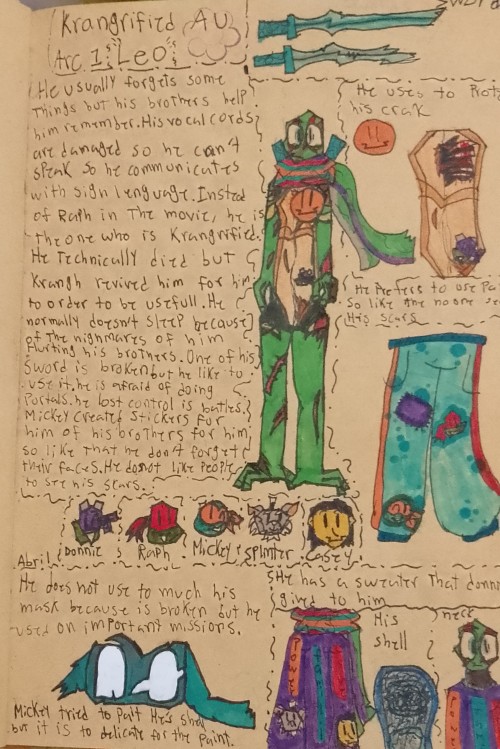 Krangrified AU
Arc 1: Leo
He usually forgets some
things but his brothers help
him remember. His vocal cords
are damaged so he can't
speak so he communicates
with sign lenguage. Insted
of Raph in the movie, he is
the one who is Krangrified.
He technically died but
Krangh revived him for him
to order to be usefull. He
normally doesn't sleep because
of the nighmares of him
Hurting his brothers. One of his
sword is broken but he like to
use it. he is afraid of doing
Portals. he lost control is batles.
Mickey created stickers for
him of his brothers for him,
so like that he don't forget
their faces. He do not like people
to see his scars.
He uses to
his crak
He Prefers to use
so like the no one
His scars
Donnie
Raph
Mickey
Splinter
Casey
Abril
He does not use to much his
mask because is broken but he
used on important missions.
Mickey tried to paint He's
but it is to delicate for the Paint.
He has a sweater that donn
gived to him
His
shell
neck
Power